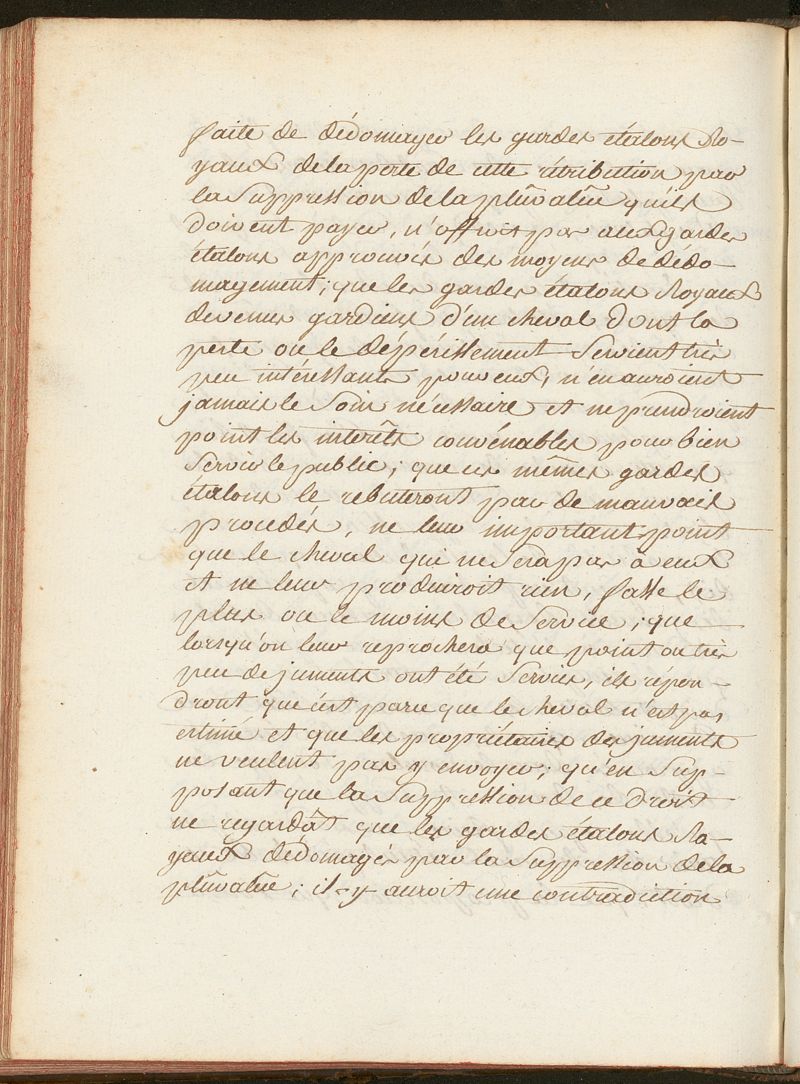 faite de dédomager les gardes étalons Ro-
yaux de la perte de cette rétribution par
la Suppression de la plûvalüe qu'ils
doivent payer, n'offroit pas aux gardes
étalons approuvés des moyens de dédo-
magement; que les gardes étalons Royaux
devenus gardiens d'un cheval dont la
perte ou le dépérissement Seroient très
peu intéressants pour eux, n'en auroient
jamais le Soin nécessaire et ne prendroient
point les interêts convénables pour bien
Servir le public; que ces mêmes gardes
étalons le rebuteront par de mauvais
procedés, ne leur important point
que le cheval qui ne Sera pas à eux
et ne leur produiroit rien, fasse le
plus ou le moins de Service; que
lorsqu'on leur reprochera que point ou très
peu de juments ont été Servies, ils répon-
dront que c'est parce que le cheval n'est pas
estimé et que les propriétaires des juments
ne veulent pas y envoyer; qu'en Sup-
posant que la Suppression de ce droit
ne regardât que les gardes étalons Ro-
yaux dédomagés par la Suppression de la
plûvalüe; il y auroit une contradiction